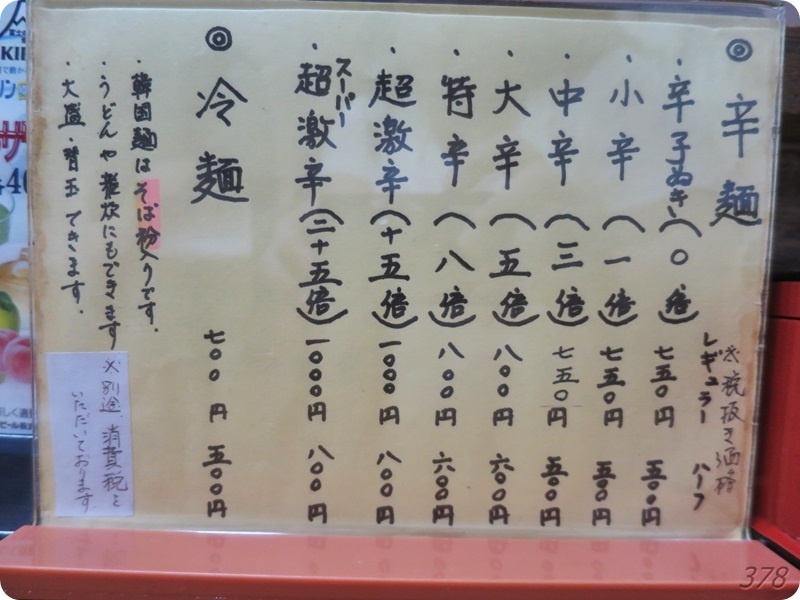 ◎ 辛麺
※税抜き価格
レギュラー ハーフ
・辛子ぬき(〇倍) 七五〇円 五〇〇円
・小辛(一倍) 七五〇円 五〇〇円
・中辛(三倍) 七五〇円 五〇〇円
・大辛(五倍) 八〇〇円 六〇〇円
・特辛(八倍) 八〇〇円 六〇〇円
・超激辛(十五倍) 一〇〇〇円 八〇〇円
スーパー
・超激辛(二十五倍) 一〇〇〇円 八〇〇円
◎ 冷麺 七〇〇円 五〇〇円
・韓国麺はそば粉入りです。
・うどんや雑炊にもできます
・大盛・替玉できます。
※別途、消費税を
いただいております
378